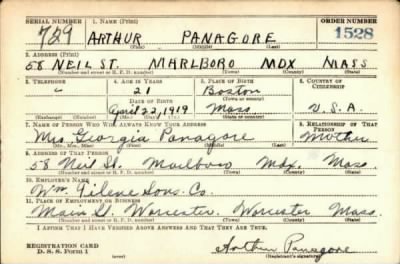 SERIAL NUMBER 1. NAME (Print) ORDER NUMBER
729 ARTHUR PANAGORE 1528
(First) (Middle) (Last)
2. ADDRESS (Print)
58 NEIL ST. MARLBORO MDX MASS
(Number and street or R. F. D. number) (Town) (County) (State)
3. TELEPHONE 4. AGE IN YEARS 5. PLACE OF BIRTH 6. COUNTRY OF CITIZENSHIP
21 Boston
DATE OF BIRTH (Town or county)
April 22, 1919 Mass U.S.A.
(Exchange) (Number) (Mo.) (Day) (Yr.) (State or country)
7. NAME OF PERSON WHO WILL ALWAYS KNOW YOUR ADDRESS 8. RELATIONSHIP OF THAT PERSON
Mrs Georgia Panagore Mother
(Mr., Mrs., Miss) (First) (Middle) (Last)
9. ADDRESS OF THAT PERSON
58 Neil St. Marlboro Mdx. Mass
(Number and street or R. F. D. number) (Town) (County) (State)
10. EMPLOYER'S NAME
Wm. Filene Sons. Co.
11. PLACE OF EMPLOYMENT OR BUSINESS
Main St. Worcester. Worcester Mass.
(Number and street or R. F. D. number) (Town) (County) (State)
I AFFIRM THAT I HAVE VERIFIED ABOVE ANSWERS AND THAT THEY ARE TRUE.
REGISTRATION CARD
D. S. S. Form 1 Arthur Panagore
(Registrant's signature)